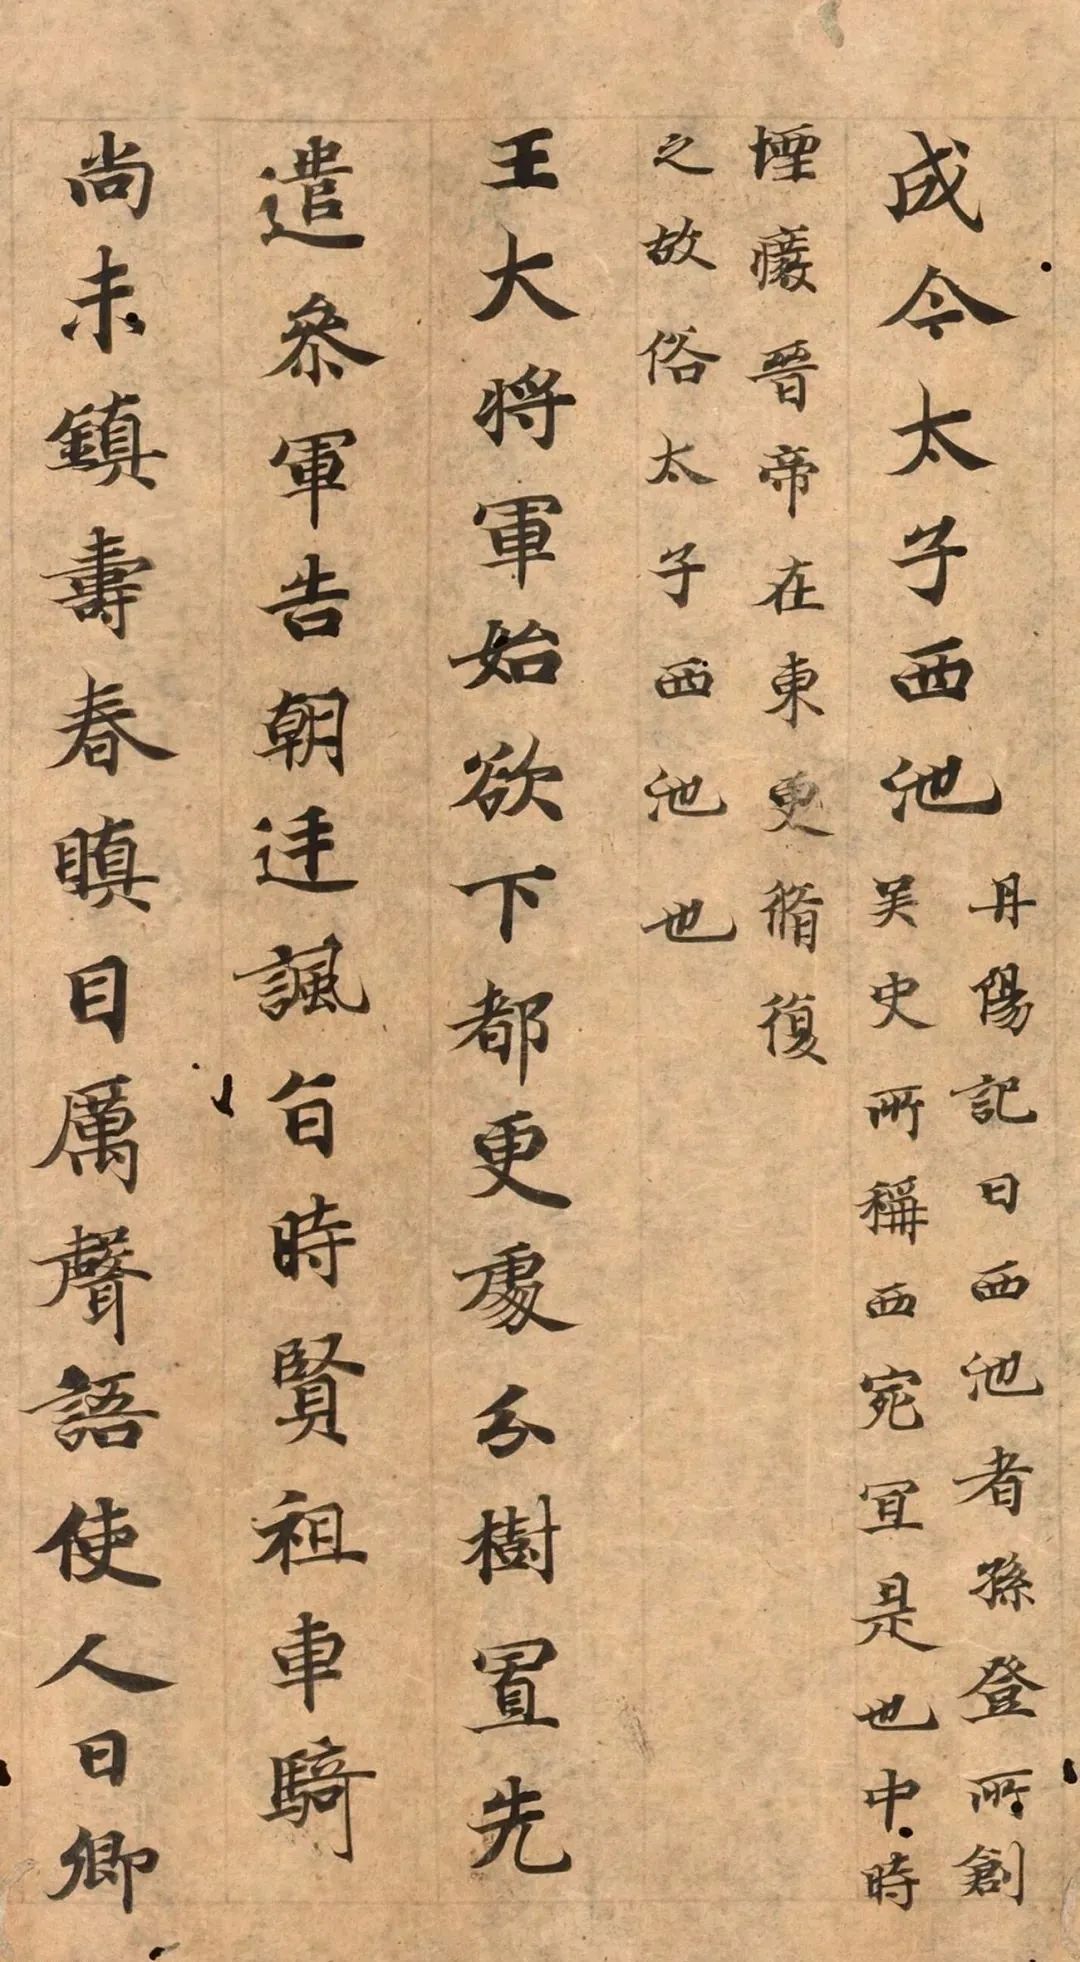 成今太子西池
丹陽記曰西池者孫登所創
吴史所稱西宛冝是也中時
堙癈晉帝在東更脩復
之故俗太子西池也
王大将軍始欲下都更處分樹置先
遣叅軍告朝廷諷旨時賢祖車騎
尚未鎮壽春瞋目厲聲語使人曰卿